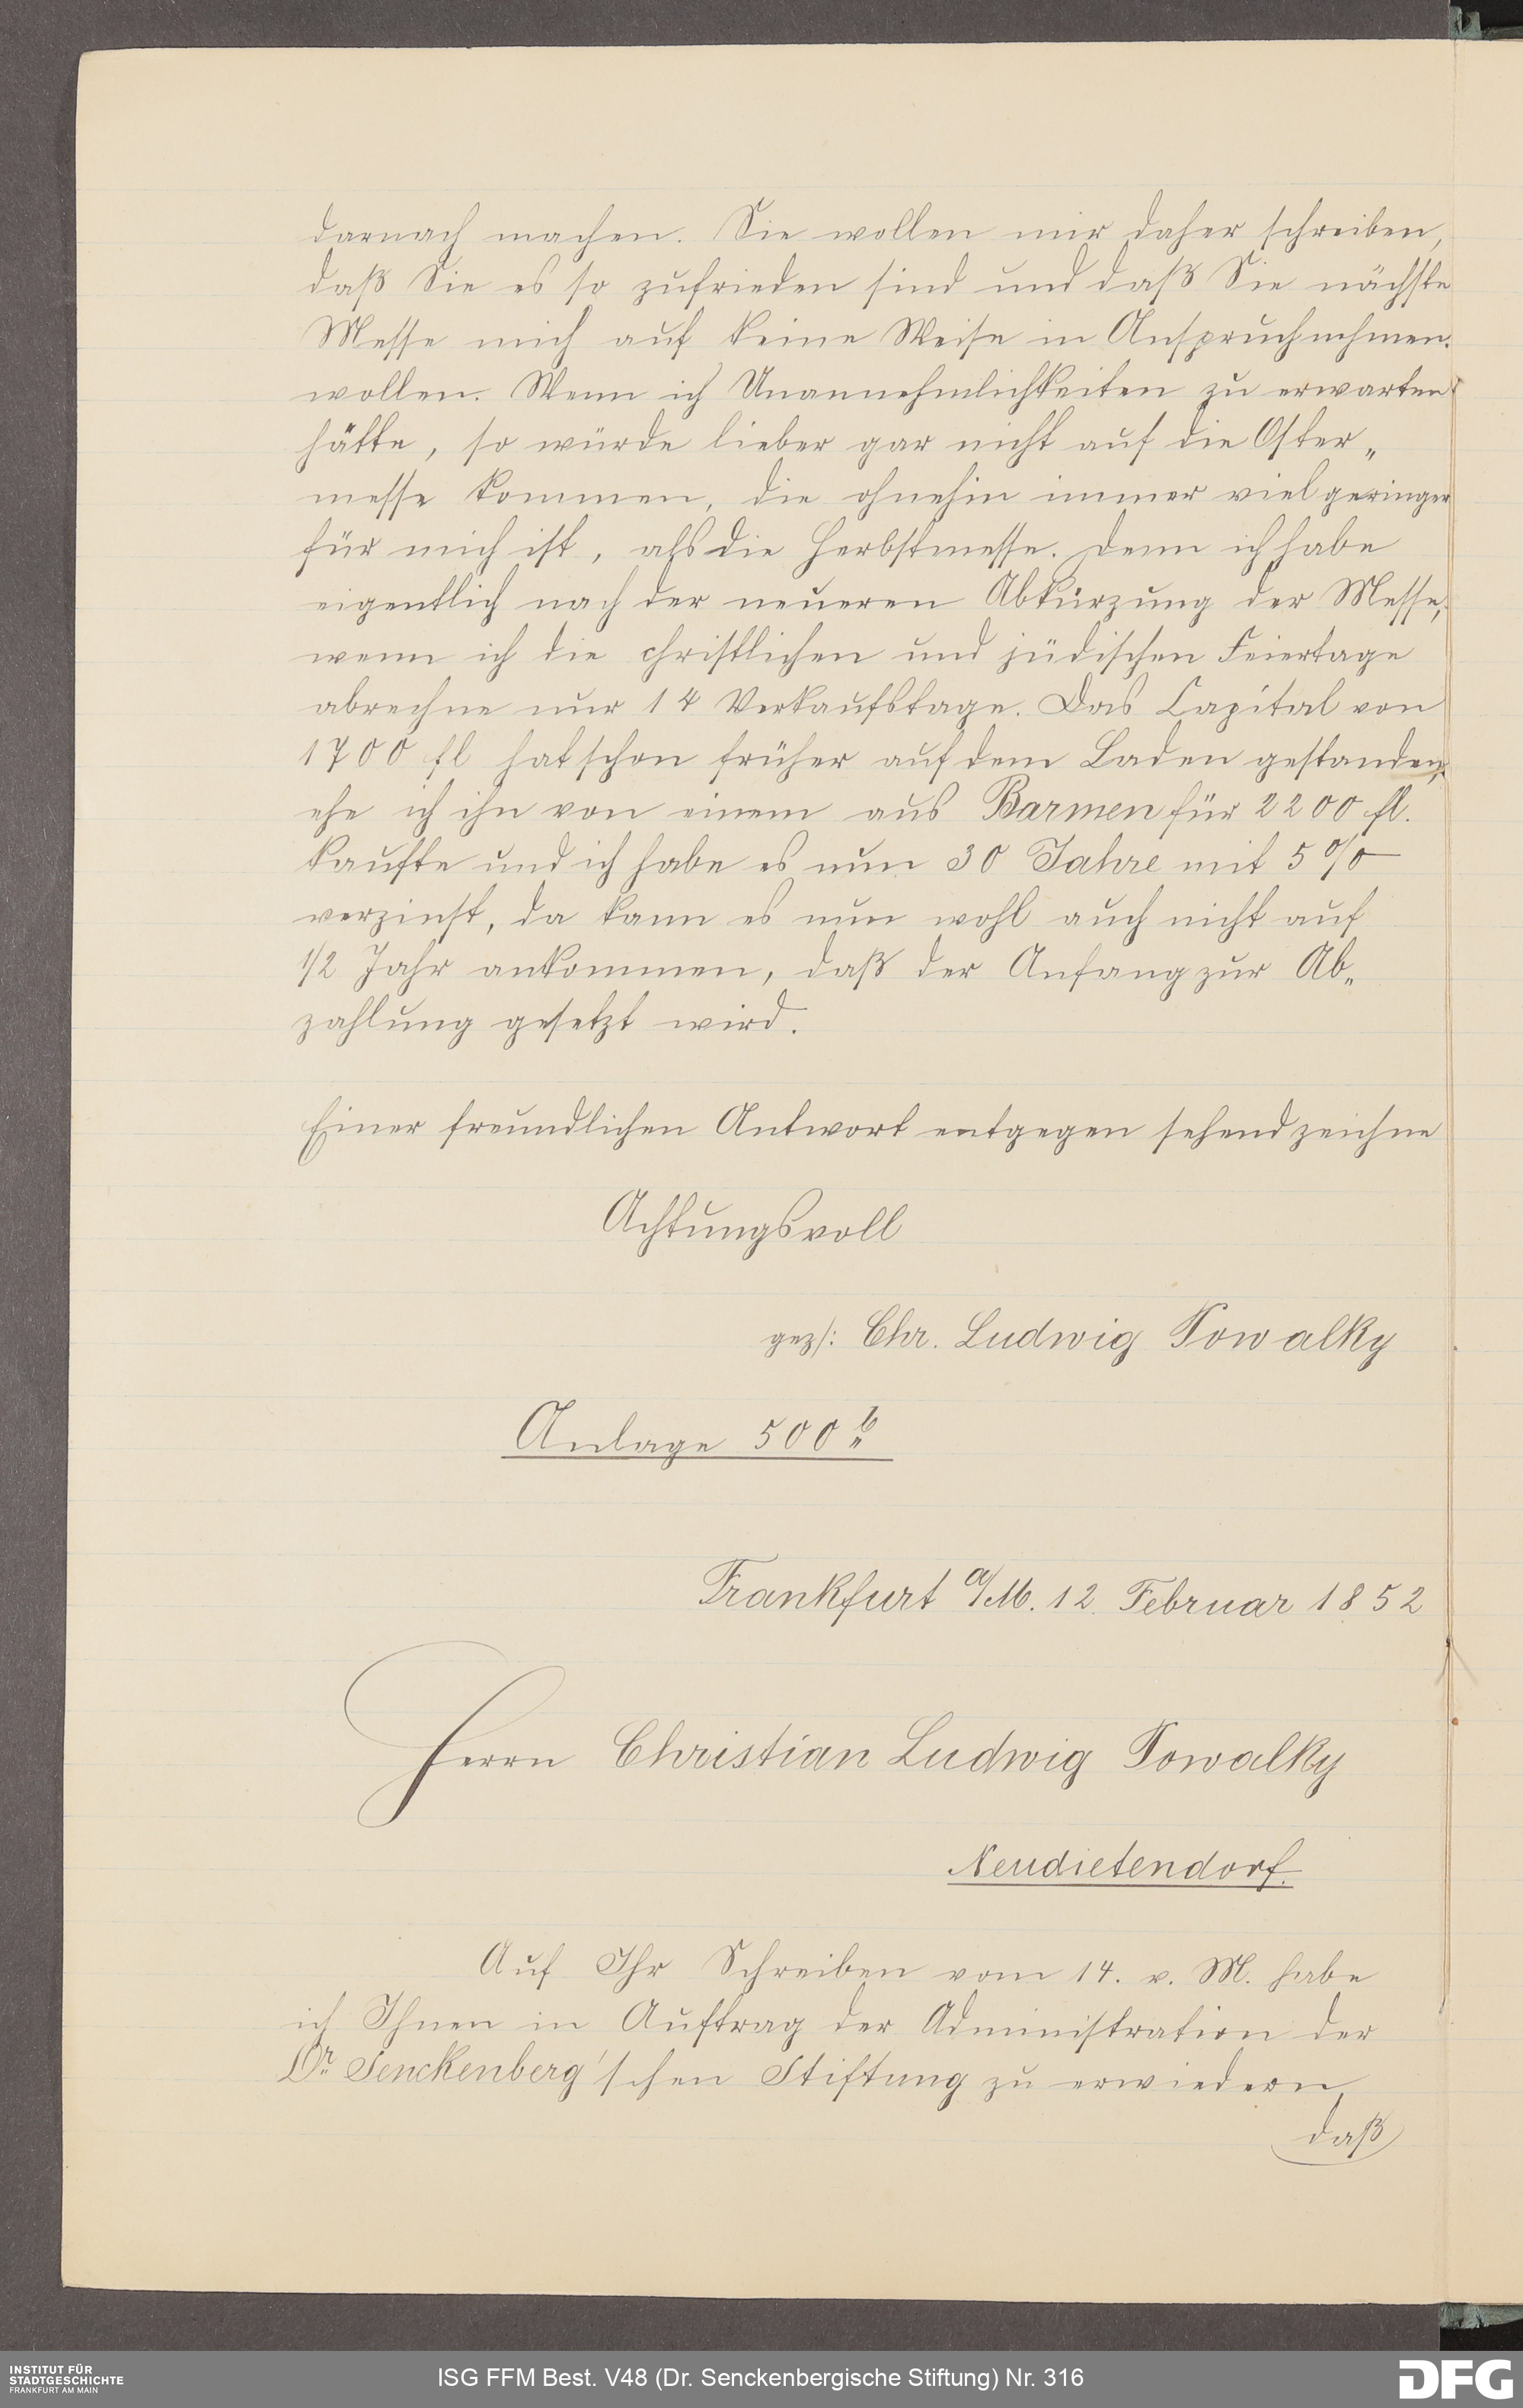 darnach machen. Sie wollen mir daher schreiben,
daß Sie es so zufrieden sind und daß Sie nächste
Messe mich auf keine Weise in Anspruch nehmen
wollen. Wenn ich Unannehmlichkeiten zu erwarten
hätte, so würde lieber gar nicht auf die Oster„
messe kommen, die ohnehin immer viel geringer
für mich ist, als die Herbstmesse. Denn ich habe
eigentlich nach der neueren Abkürzung der Messe,
wenn ich die christlichen und jüdischen Feiertage
abrechne nur 14 Verkaufstage. Das Capital von
1700 fl hat schon früher auf dem Laden gestanden,
ehe ich ihn von einem aus Barmen für 2200 fl.
kaufte und ich habe es nun 30 Jahre mit 5%
verzinst, da kann es nun wohl auch nicht auf
1/2 Jahr ankommen, daß der Anfang zur Ab„
zahlung gesetzt wird.
Einer freundlichen Antwort entgegen sehend zeichne
Achtungsvoll
gez/: Chr. Ludwig Powalky
Anlage 500 b
Frankfurt a/M. 12. Februar 1852
Herrn Christian Ludwig Powalky
Neudietendorf.
Auf Ihr Schreiben vom 14. v. M. habe
ich Ihnen in Auftrag der Administration der
Dr Senckenberg'schen Stiftung zu erwiedern,
daß
INSTITUT FÜR
STADTGESCHICHTE
FRANKFURT AM MAIN
ISG FFM Best. V48 (Dr. Senckenbergische Stiftung) Nr. 316
DFG